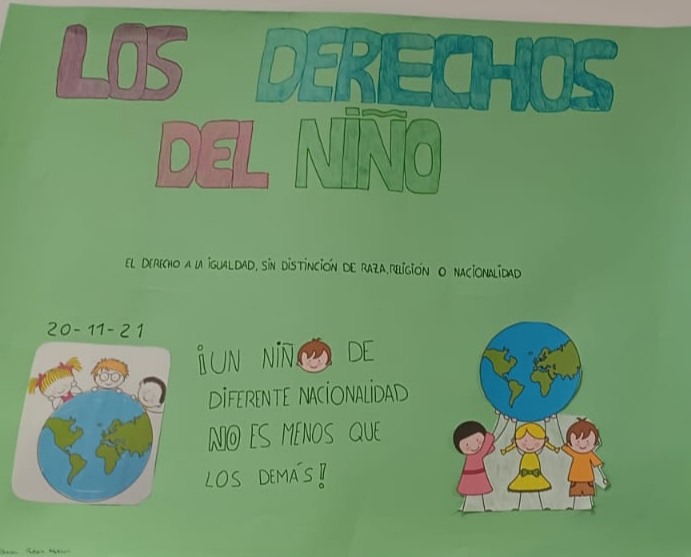 LOS DERECHOS
DEL NIÑO
EL DERECHO A LA IGUALDAD, SIN DISTINCIÓN DE RAZA, RELIGIÓN O NACIONALIDAD
20-11-21
¡UN NIÑ DE
DIFERENTE NACIONALIDAD
NO ES MENOS QUE
LOS DEMÁS!